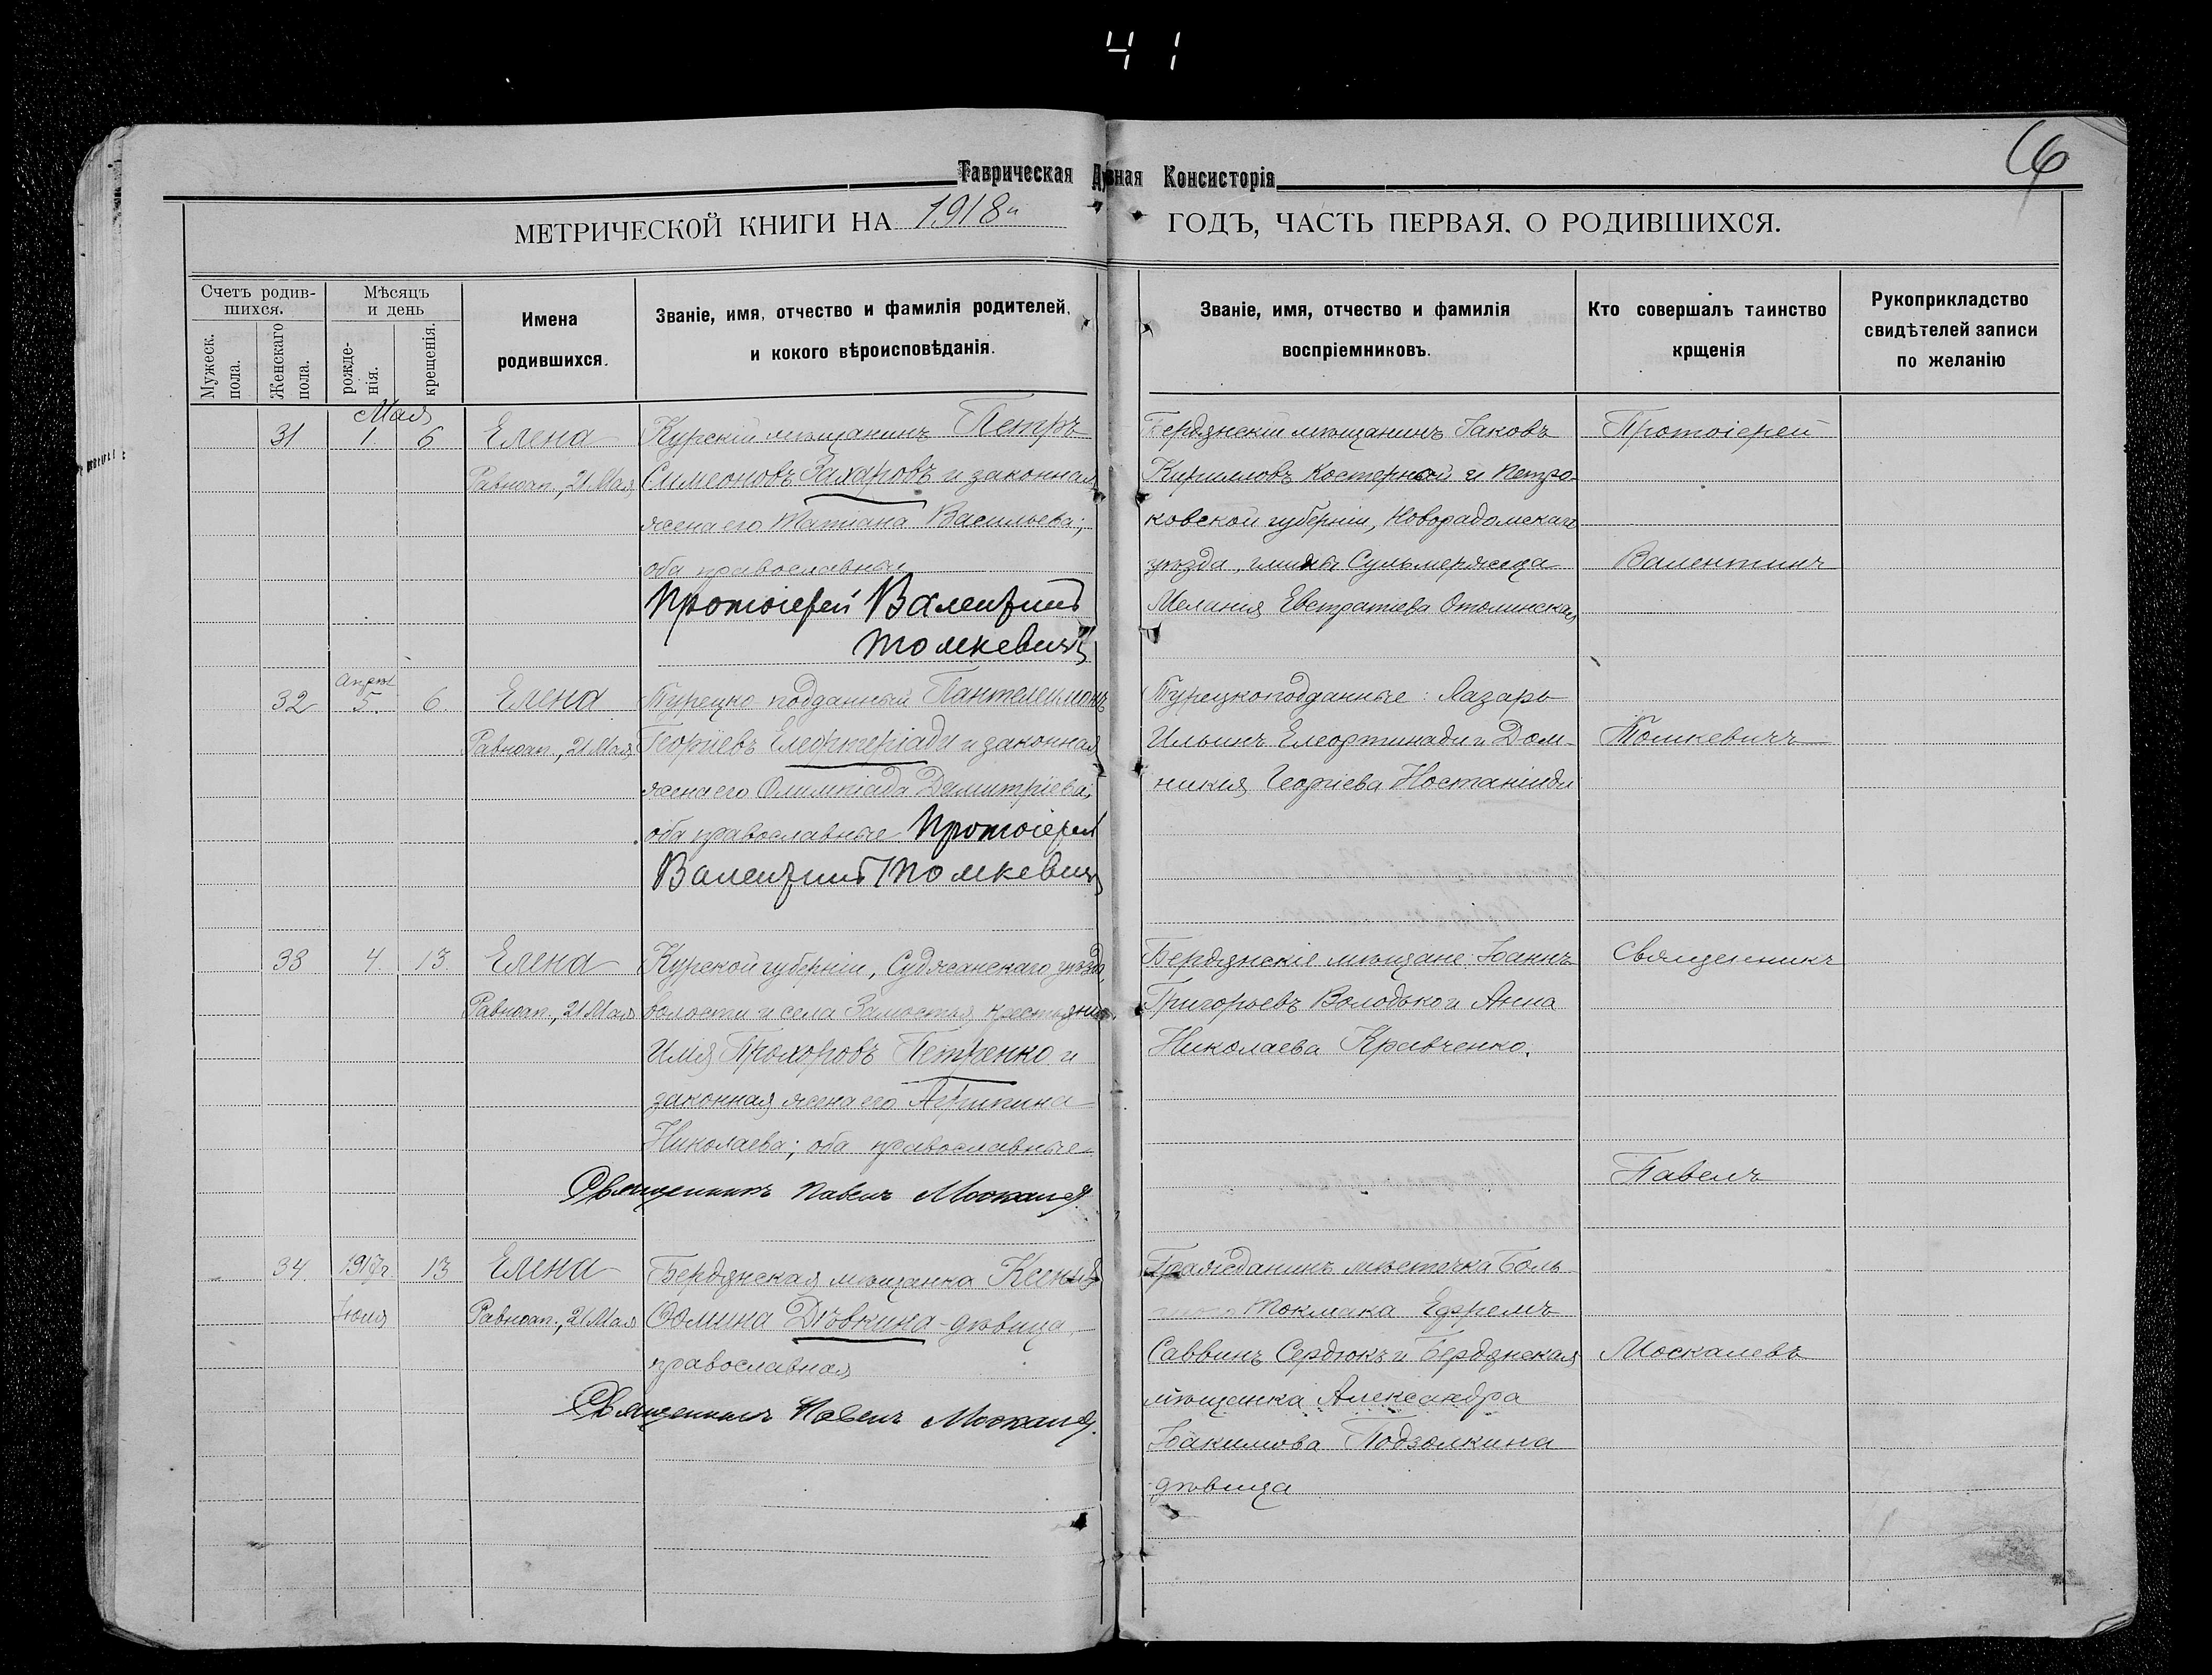 41
6
Таврическая Духовная Консисторія
МЕТРИЧЕСКОЙ КНИГИ НА 1918й ГОДЪ, ЧАСТЬ ПЕРВАЯ, О РОДИВШИХСЯ.
Счетъ родив-
шихся.
Мужеск.
пола.
Женскаго
пола.
Мѣсяцъ
и день
рожде-
нія.
крещенія.
Имена
родившихся.
Званіе, имя, отчество и фамилія родителей,
и кокого вѣроисповѣданія.
Званіе, имя, отчество и фамилія
воспріемниковъ.
Кто совершалъ таинство
крщенія
Рукоприкладство
свидѣтелей записи
по желанію
Мая
31 1. 6 Елена
Равноап., 21 Мая
Курскій мѣщанинъ Петръ
Симеоновъ Захаровъ и законная
жена его Татіана Васильева;
оба православные
Протоіерей Валентинъ
Томкевичъ
Бердянскій мѣщанинъ Іаковъ
Кирилловъ Костерной и Петро-
ковской губерніи, Новорадомскаго
уѣзда, гмины Сульмержица
Меланія Евстратіева Отолинская
Протоіерей
Валентинъ
Апрѣл
32 5. 6. Елена
Равноап., 21 Мая
Турецко подданный Пантелеимонъ
Георгіевъ Елефтеріади и законная
жена его Олимпіада Димитріева;
оба православные Протоіерей
Валентинъ Томкевичъ
Турецкоподданные: Лазарь
Ильинъ и Дом-
никія Георгіева
Томкевичъ
33 4. 13. Елена
Равноап., 21 Мая
Курской губерніи, Суджанскаго уѣзда,
волости и села Замостья крестьянинъ
Илія Прохоровъ Петренко и
законная жена его Агрипина
Николаева; оба православные
Священникъ Павелъ Москалевъ
Бердянскіе мѣщане: Іоаннъ
Григорьевъ Володько и Анна
Николаева Кравченко.
Священникъ
Павелъ
34. 1917г. 13 Елена
Іюля
Равноап., 21 Мая
Бердянская мѣщанка Ксенія
Ѳомина Дѣвкина - дѣвица,
православная
Священникъ Павелъ Москалевъ.
Гражданинъ мѣстечка Боль-
шого Токмака Ефремъ
Саввинъ Сердюкъ и Бердянская
мѣщанка Александра
Іоакимова Подзолкина
дѣвица
Москалевъ